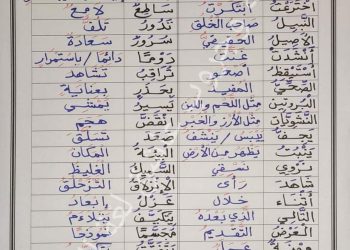 سَاطِعٌ لامع
النَّبِيلُ صاحب الخلق تَدُورُ تلف
الْأَصِيلُ الحقيقي سُرُورٌ سعادة
أَنْشَدَتْ غنت دَوْمًا دائما / باستمرار
أَسْتَيْقِظُ أصحو تُرَاقِبُ تشاهد
الصِّحِّيُّ المفيد بِحَذَرٍ بعناية
الْبُرُوتِينَ مثل اللحم واللبن يَسِيرُ يمشي
النَّشَوِيَّاتِ مثل الأرز والخبز انْقَضَّ هجم
يَجِفُّ ييبس / ينشف صَعِدَ تسلق
يَنْبُتُ يظهر من الأرض الْبِيئَةُ المكان
تَرْوِي تسقي السَّمِيكُ الغليظ
شَاهَدَ رأى الِانْزِلَاقُ التزحلق
أَثْنَاءَ خلال عَزْلٌ إبعاد
التَّالِي الذي بعده يَتَكَيَّفُ يتلاءم
الْعَرْضُ التقديم مُجَسَّمًا نموذجا